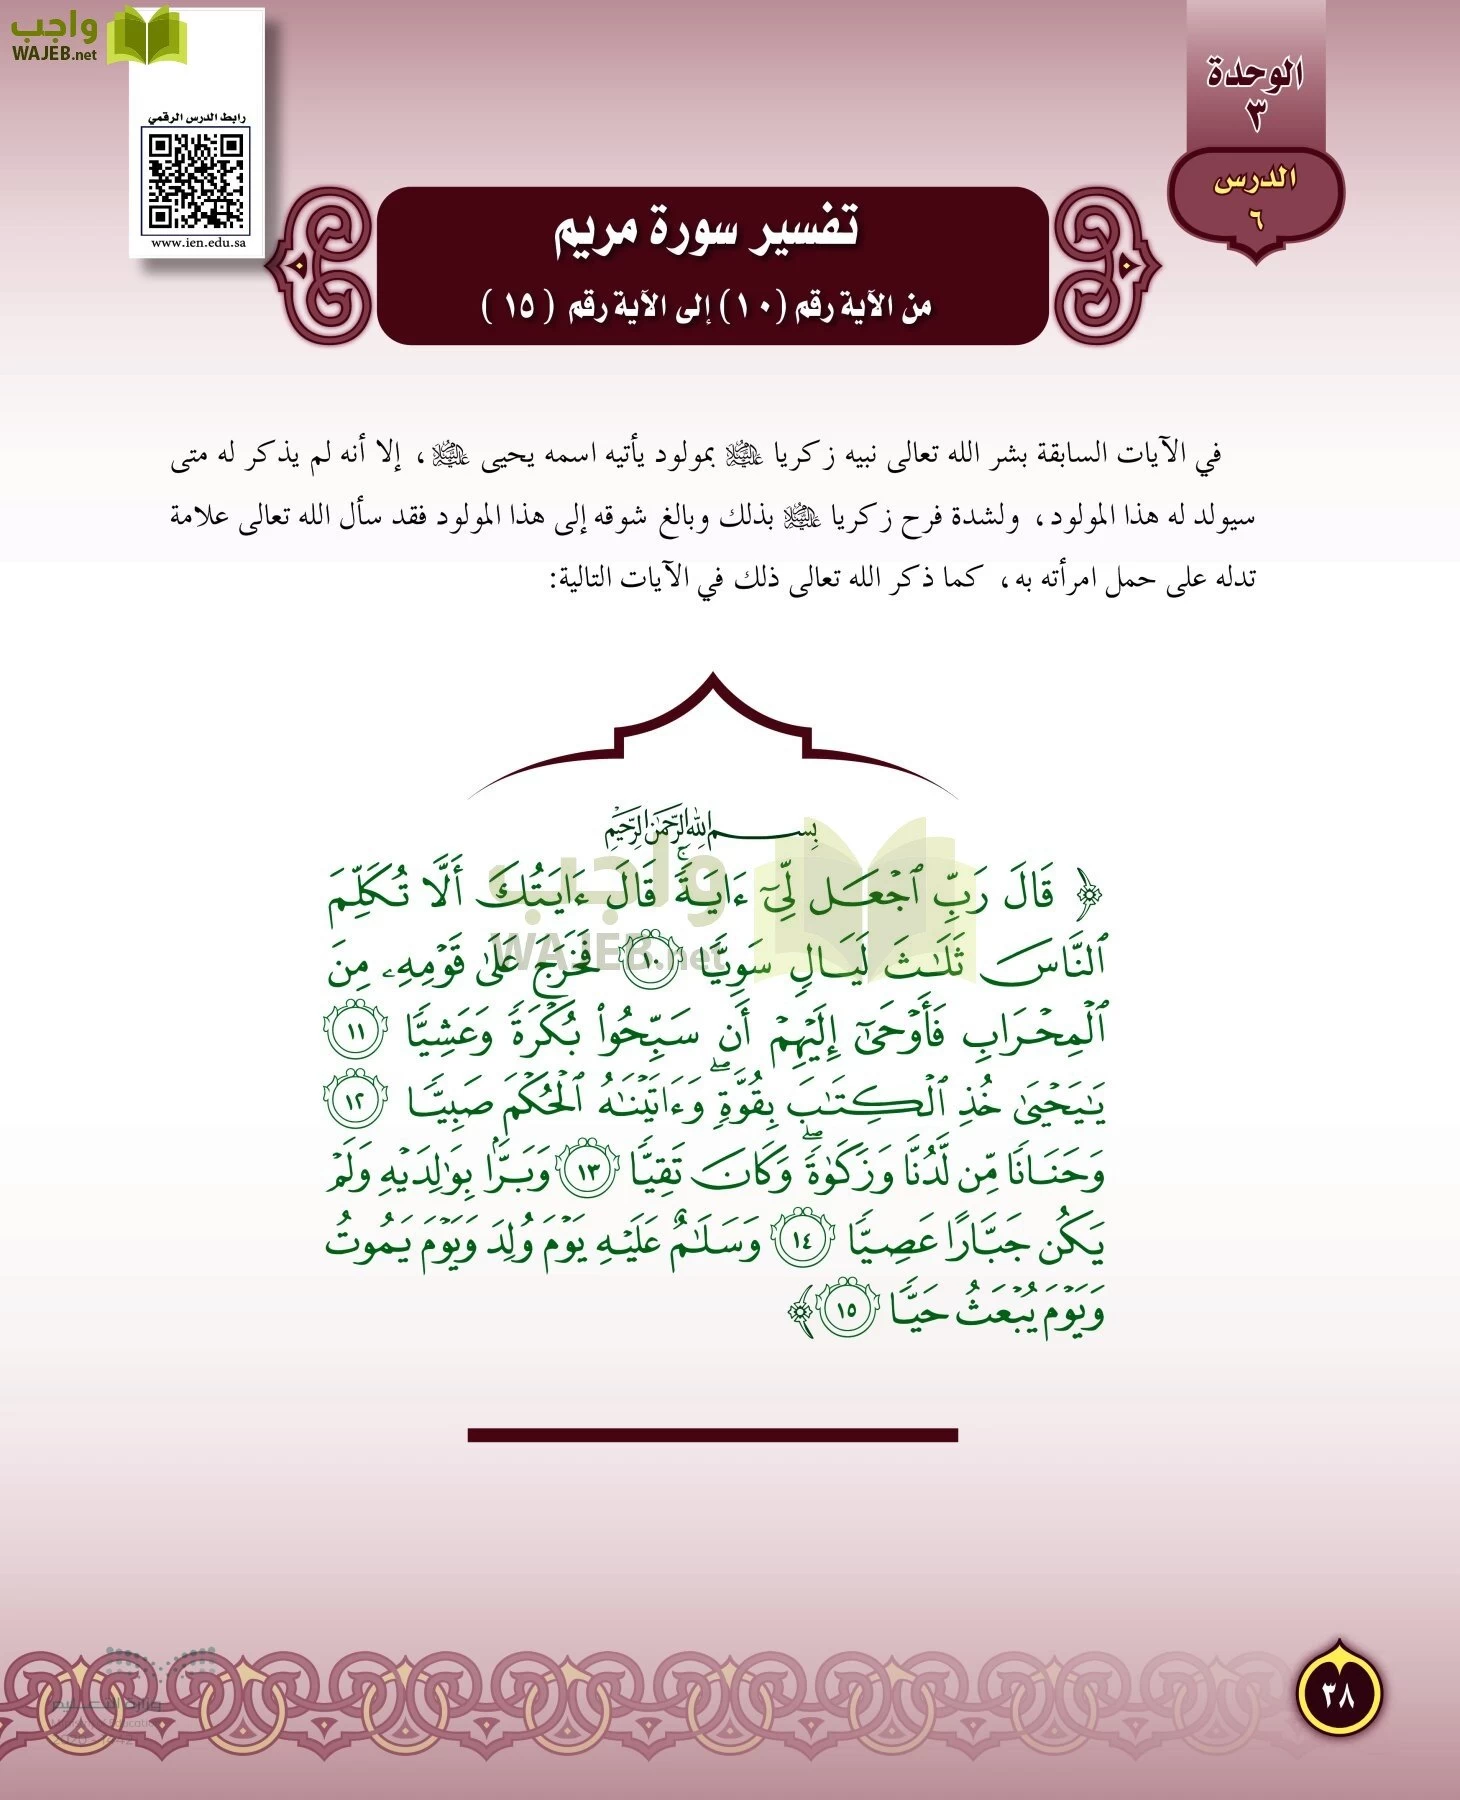 واجب
WAJEB.net
الوحدة
٣
الدرس
٦
رابط الدرس الرقمي
www.ien.edu.sa
تفسير سورة مريم
من الآية رقم (١٠) إلى الآية رقم (١٥)
في الآيات السابقة بشر الله تعالى نبيه زكريا عليه السلام بمولود يأتيه اسمه يحيى عليه السلام، إلا أنه لم يذكر له متى
سيولد له هذا المولود، ولشدة فرح زكريا عليه السلام بذلك وبالغ شوقه إلى هذا المولود فقد سأل الله تعالى علامة
تدله على حمل امرأته به، كما ذكر الله تعالى ذلك في الآيات التالية:
بِسْمِ اللَّهِ الرَّحْمَٰنِ الرَّحِيمِ
﴿ قَالَ رَبِّ ٱجْعَل لِّىٓ ءَايَةً ۚ قَالَ ءَايَتُكَ أَلَّا تُكَلِّمَ
ٱلنَّاسَ ثَلَٰثَ لَيَالٍ سَوِيًّا ١٠ فَخَرَجَ عَلَىٰ قَوْمِهِۦ مِنَ
ٱلْمِحْرَابِ فَأَوْحَىٰٓ إِلَيْهِمْ أَن سَبِّحُوا۟ بُكْرَةً وَعَشِيًّا ١١
يَٰيَحْيَىٰ خُذِ ٱلْكِتَٰبَ بِقُوَّةٍ ۖ وَءَاتَيْنَٰهُ ٱلْحُكْمَ صَبِيًّا ١٢
وَحَنَانًا مِّن لَّدُنَّا وَزَكَوٰةً ۖ وَكَانَ تَقِيًّا ١٣ وَبَرًّۢا بِوَٰلِدَيْهِ وَلَمْ
يَكُن جَبَّارًا عَصِيًّا ١٤ وَسَلَٰمٌ عَلَيْهِ يَوْمَ وُلِدَ وَيَوْمَ يَمُوتُ
وَيَوْمَ يُبْعَثُ حَيًّا ١٥ ﴾
واجب
WAJEB.net
وزارة التعليم
٣٨